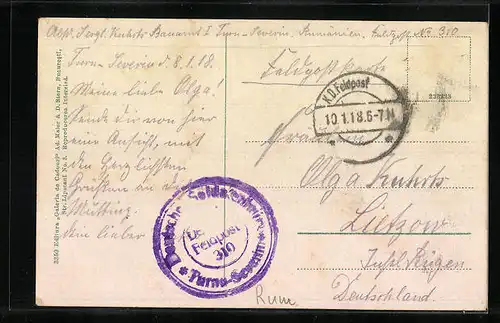 Abs. Sergt. Kuhrts Bauamt I Turn-Severin, Rumänien, Feldpost No. 310
Turn-Severin d. 8.1.18.
Meine liebe Olga!
Sende dir von hier
eine Ansicht, mit
den herzlichsten
Grüßen an
Mutting.
Dein lieber
Feldpostkarte
K.D. Feldpost
10.1.18.6-7N
Fräulein
Olga Kuhrts
Lietzow
Insel Rügen
Deutschland.
Deutsches Soldatenheim
Dt. Feldpost
310
* Turnu-Severin *
Rum
3350 Editura „Galeria de Cadouri" Ad. Maier & D. Stern, Bucureşti,
Str. Lipscani No. 5. Reproducerea interzisă.